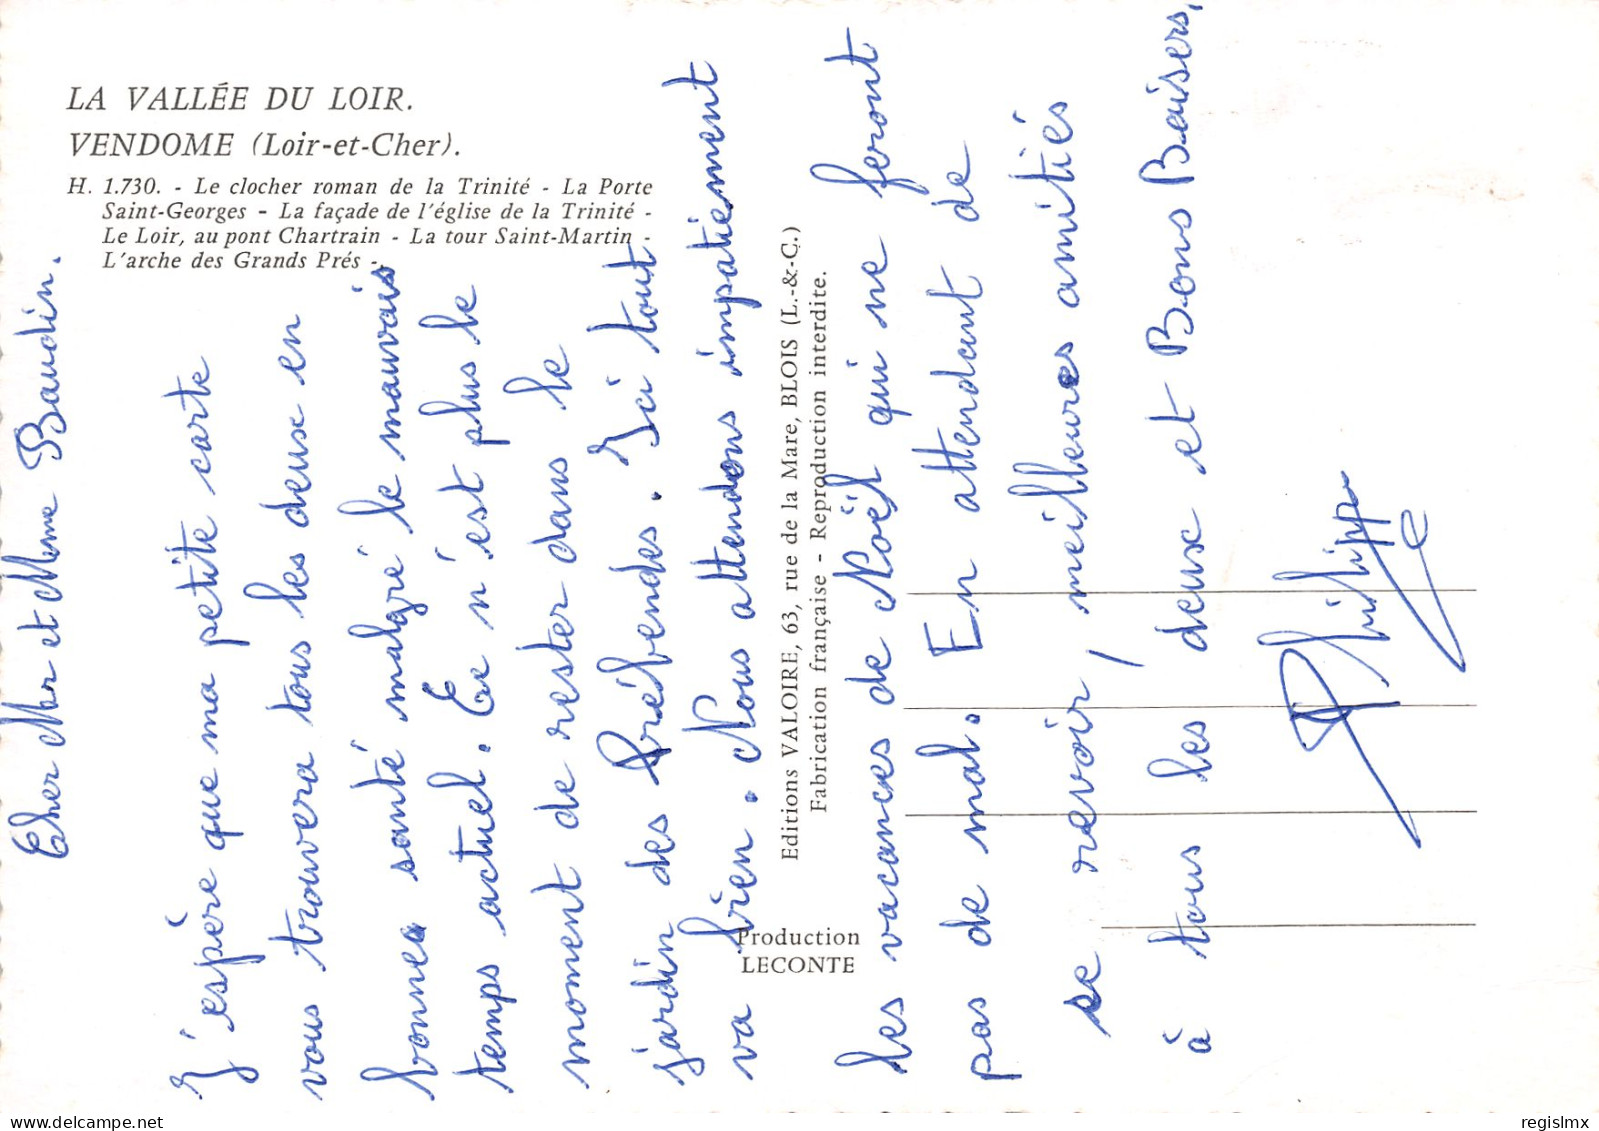 LA VALLÉE DU LOIR.
VENDOME (Loir-et-Cher).
H. 1.730. - Le clocher roman de la Trinité - La Porte
Saint-Georges - La façade de l'église de la Trinité -
Le Loir, au pont Chartrain - La tour Saint-Martin -
L'arche des Grands Prés -
Cher Mer et Mme Baudin.
J'espère que ma petite carte
vous trouvera tous les deux en
bonnes santé malgré le mauvais
temps actuel. Ce n'est plus le
moment de rester dans le
jardin des Prébendes. Ici tout
va bien. Nous attendons impatiemment
les vacances de Noël qui ne feront
pas de mal. En attendant de
se revoir, meilleures amitiés
à tous les deux et Bons Baisers,
Philippe
Editions VALOIRE, 63, rue de la Mare, BLOIS (L.-&-C.)
Fabrication française - Reproduction interdite.
Production
LECONTE
delcampe.net
regislmx